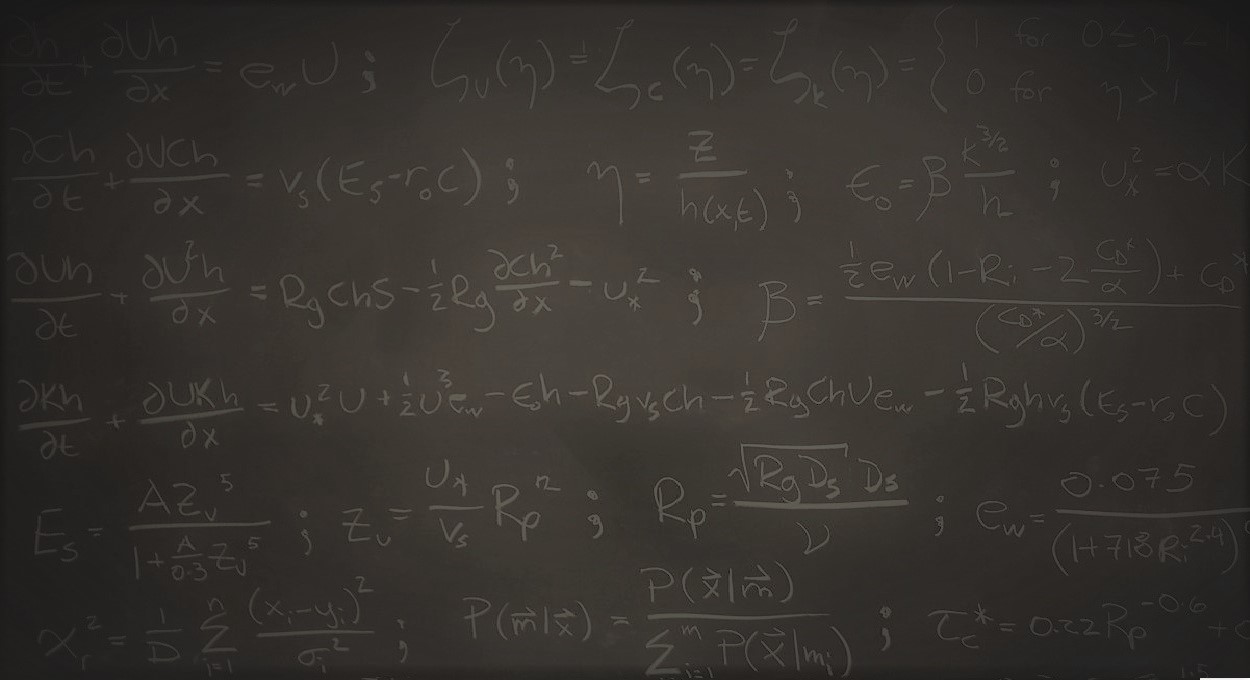 ∂h/∂t + ∂Uh/∂x = e_w U ; ζ_U(η) = ζ_c(η) = ζ_k(η) = { 1 for 0 ≤ η < 1 ; 0 for η > 1
∂Ch/∂t + ∂UCh/∂x = v_s(E_s - r_o C) ; η = z/h(x,t) ; ε_o = β K^{3/2}/h ; u_*^2 = αK
∂Uh/∂t + ∂U^2h/∂x = RgChS - ½Rg ∂Ch^2/∂x - u_*^2 ; β = (½e_w(1 - R_i - 2 C_D^*/α) + C_D^*)/(C_D^*/α)^{3/2}
∂Kh/∂t + ∂UKh/∂x = u_*^2 U + ½U^3e_w - ε_o h - Rgv_sCh - ½RgChUe_w - ½Rghv_s(E_s - r_o C)
E_s = AZ_u^5/(1 + A/0.3 Z_u^5) ; Z_u = U_*/v_s R_p^n ; R_p = √(RgD_s) D_s/ν ; e_w = 0.075/(1+718R_i^{2.4})
χ_r^2 = 1/D Σ_{i=1}^n (x_i - y_i)^2/σ_i^2 ; P(m⃗|x⃗) = P(x⃗|m⃗)/Σ_{i=1}^m P(x⃗|m_i) ; τ_c^* = 0.22R_p^{-0.6} +